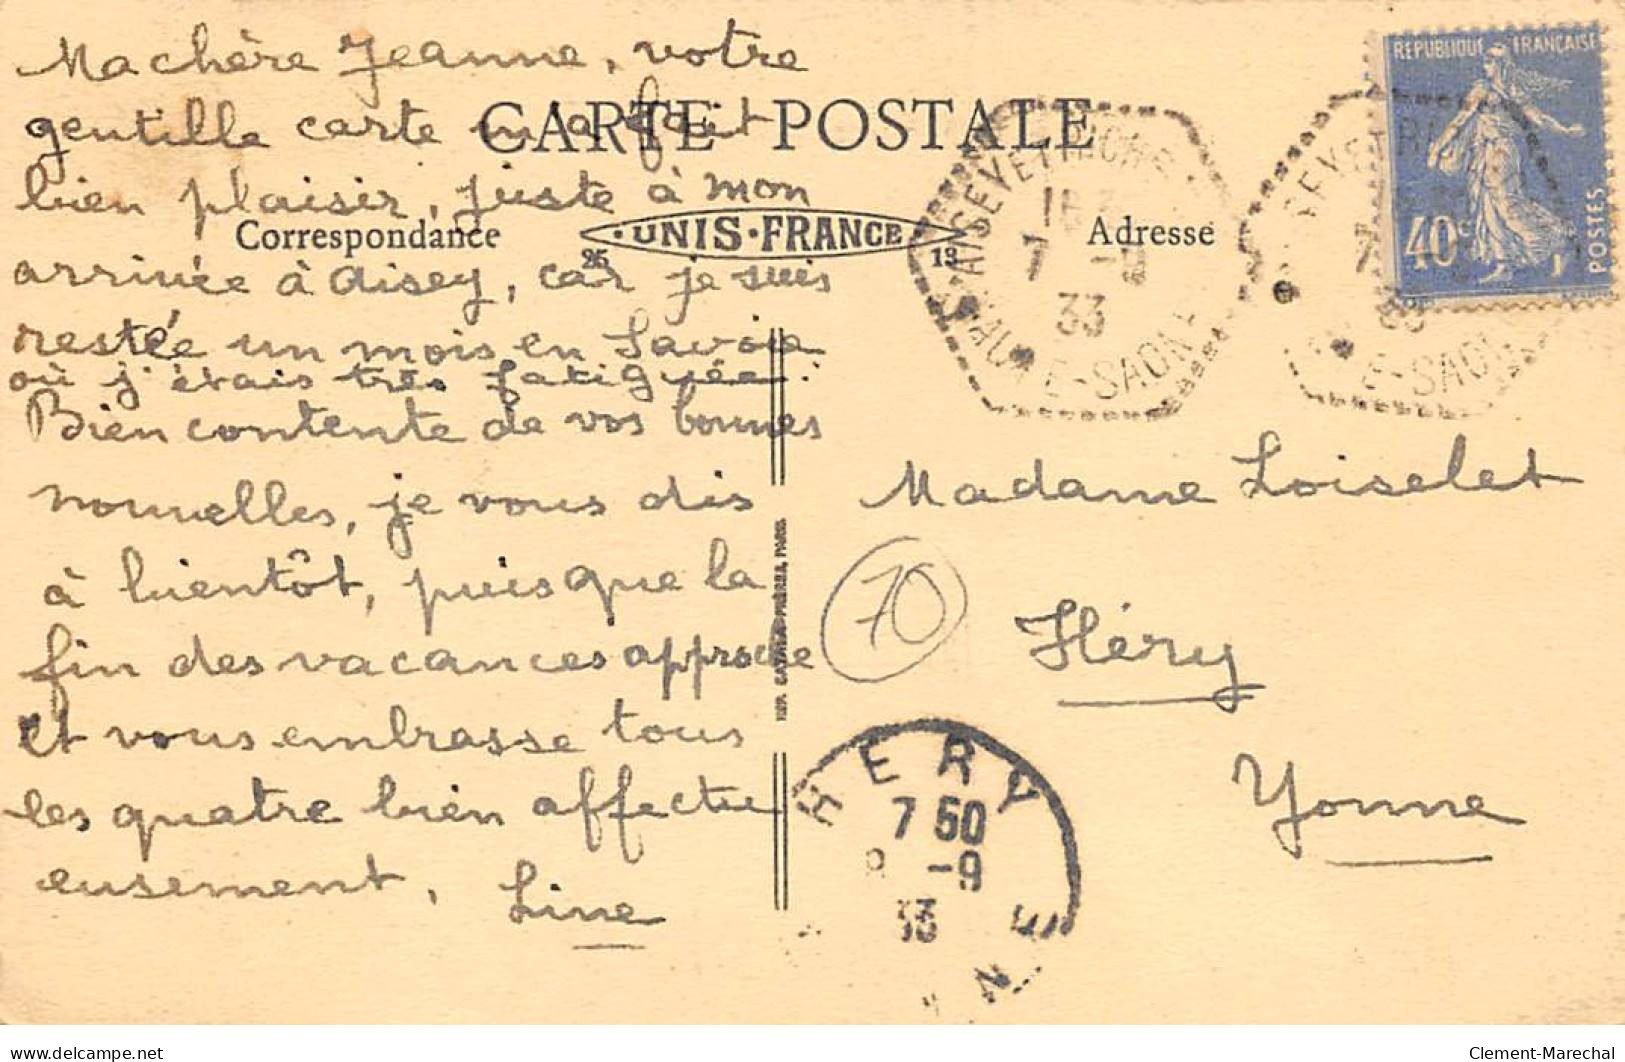 Ma chère Jeanne, votre
gentille carte m'a fait
bien plaisir, juste à mon
arrivée à Aisey, car je suis
restée un mois en Savoie
où j'étais très fatiguée.
Bien contente de vos bonnes
nouvelles, je vous dis
à bientôt, puisque la
fin des vacances approche
et vous embrasse tous
les quatre bien affectu
eusement, Line
CARTE POSTALE
Correspondance
UNIS-FRANCE
25 13
Adresse
AISEY ET RICHE
7 -9
33
HAUTE-SAONE
REPUBLIQUE FRANÇAISE
40c
POSTES
SEY ET RI
7
33
E-SAON
Madame Loiselet
Héry
Yonne
70
IMP. CATALA FRÈRES, PARIS
HERY
7 50
8 -9
33
NNE
delcampe.net
Clement-Marechal